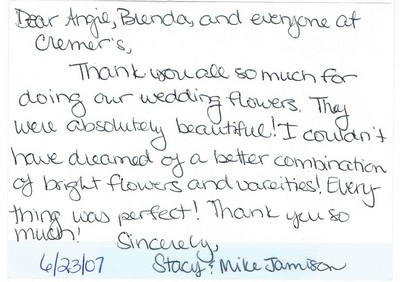 Dear Angie, Brenda, and everyone at
Cremer's,
Thank you all so much for
doing our wedding flowers. They
were absolutely beautiful! I couldn't
have dreamed of a better combination
of bright flowers and vareities! Every
thing was perfect! Thank you so
much!
Sincerely,
6/23/07 Stacy & Mike Jamison